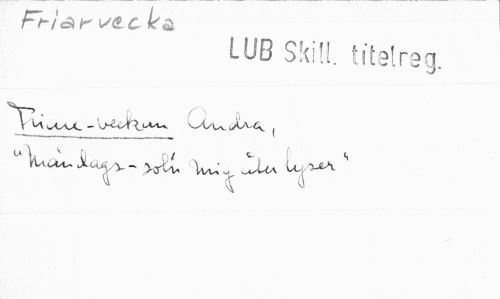 Friarvecka
LUB Skill. titelreg.
Friare-veckan Andra,
"Måndags-sol'n mig åter lyser"